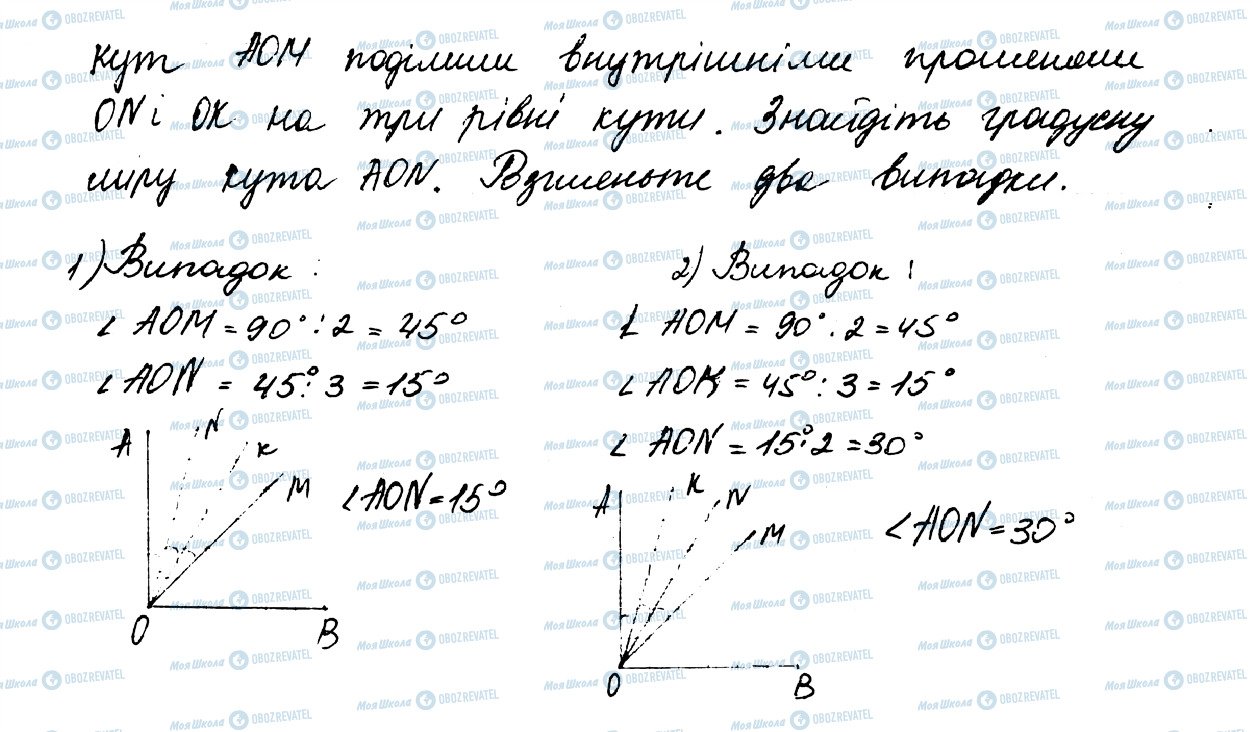 Кут АОМ поділили внутрішніми променями
ON і ОК на три рівні кути. Знайдіть градусну
міру кута AON. Розгляньте два випадки.
1) Випадок:
∠ AOM = 90° : 2 = 45°
∠ AON = 45° : 3 = 15°
A N K M
∠AON = 15°
O B
2) Випадок:
∠ AOM = 90° : 2 = 45°
∠ AOK = 45° : 3 = 15°
∠ AON = 15° · 2 = 30°
A K N M
∠AON = 30°
O B
МояШкола OBOZREVATEL